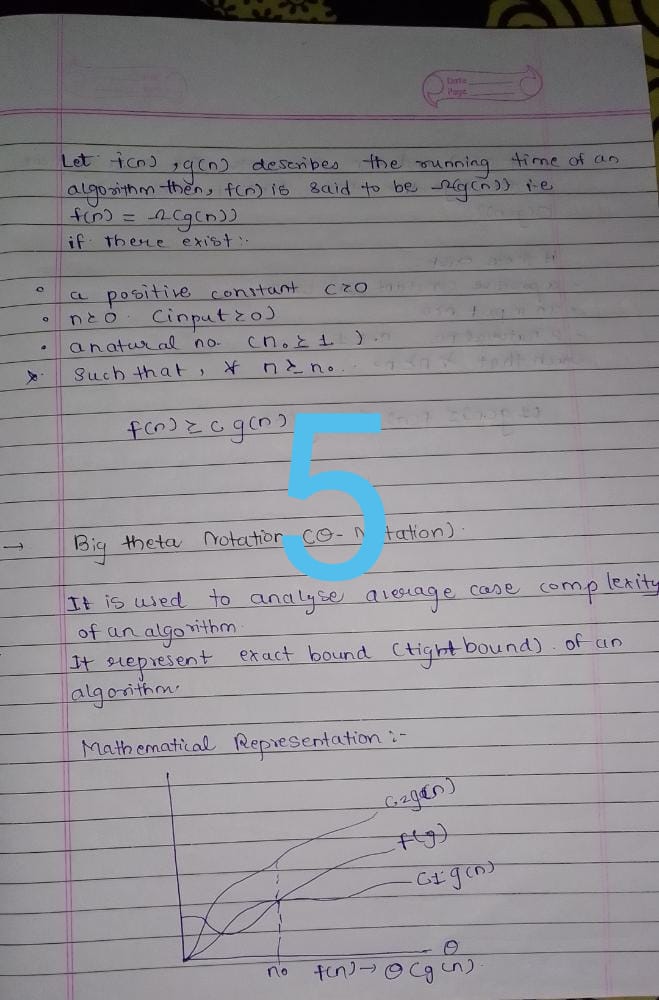 Date
Page
Let f(n), g(n) describes the running time of an
algorithm then, f(n) is said to be Ω(g(n)) i.e
f(n) = Ω(g(n))
if there exist:-
a positive constant c≥0
n≥0 (input≥0)
a natural no. (n₀ ≥ 1 ).
Such that, ∀ n≥n₀.
f(n) ≥ c g(n)
5
→ Big theta Notation (Θ- Notation).
It is used to analyse average case complexity
of an algorithm.
It represent exact bound (tight bound). of an
algorithm.
Mathematical Representation:-
C₂g(n)
f(g)
C1 g(n)
Θ
n₀ f(n)→ Θ(g(n)).